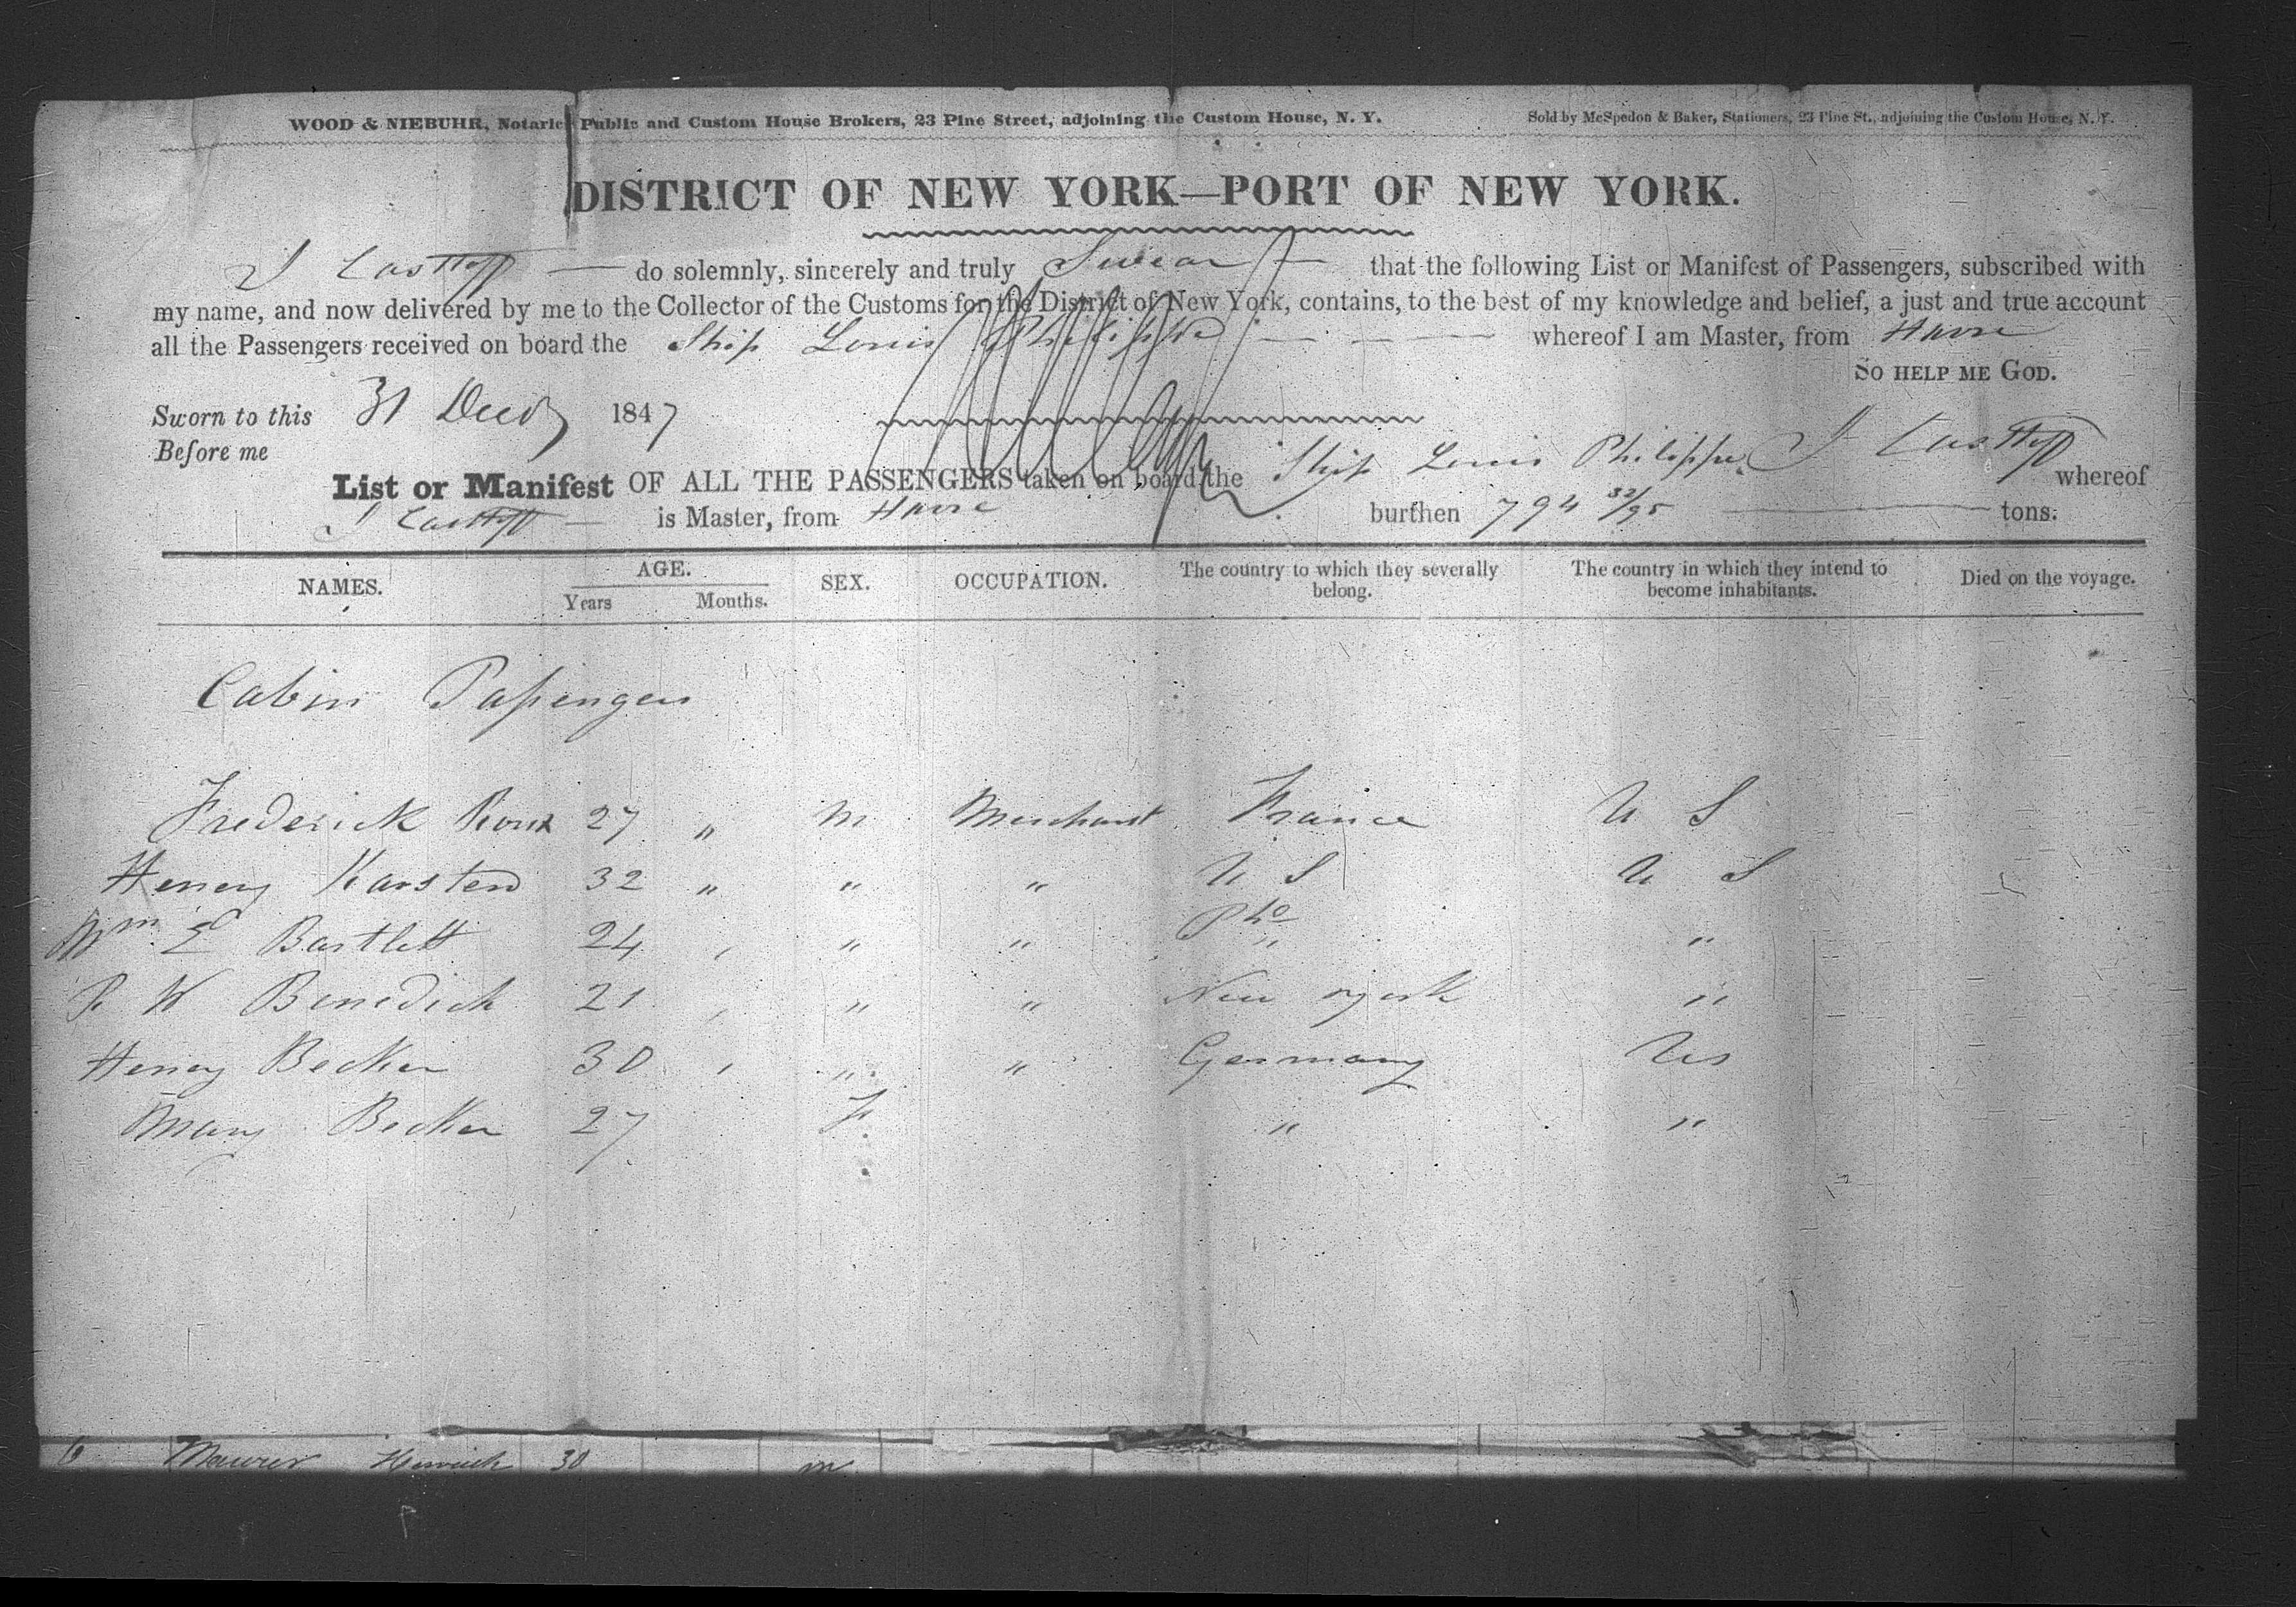 WOOD & NIEBUHR, Notaries Public and Custom House Brokers, 23 Pine Street, adjoining the Custom House, N. Y. Sold by McSpedon & Baker, Stationers, 23 Pine St., adjoining the Custom House, N. Y.
DISTRICT OF NEW YORK—PORT OF NEW YORK.
I do solemnly, sincerely and truly Swear that the following List or Manifest of Passengers, subscribed with
my name, and now delivered by me to the Collector of the Customs for the District of New York, contains, to the best of my knowledge and belief, a just and true account
all the Passengers received on board the Ship Louis Philippe whereof I am Master, from Havre
SO HELP ME GOD.
Sworn to this 31 Decr 1847
Before me
List or Manifest OF ALL THE PASSENGERS taken on board the Ship Louis Philippe whereof
is Master, from Havre burthen 794 32/95 tons.
NAMES. AGE. SEX. OCCUPATION. The country to which they severally belong. The country in which they intend to become inhabitants. Died on the voyage.
Years Months.
Cabin Passengers
Frederick Roux 27 " M Merchant France U S
Henry Karsten 32 " " " U S U S
Wm E Bartlett 24 , " " " "
W Benedick 21 , " " New York "
Henry Becker 30 , " " Germany US
Mary Becker 27 F " "
6 Maurer 30 m